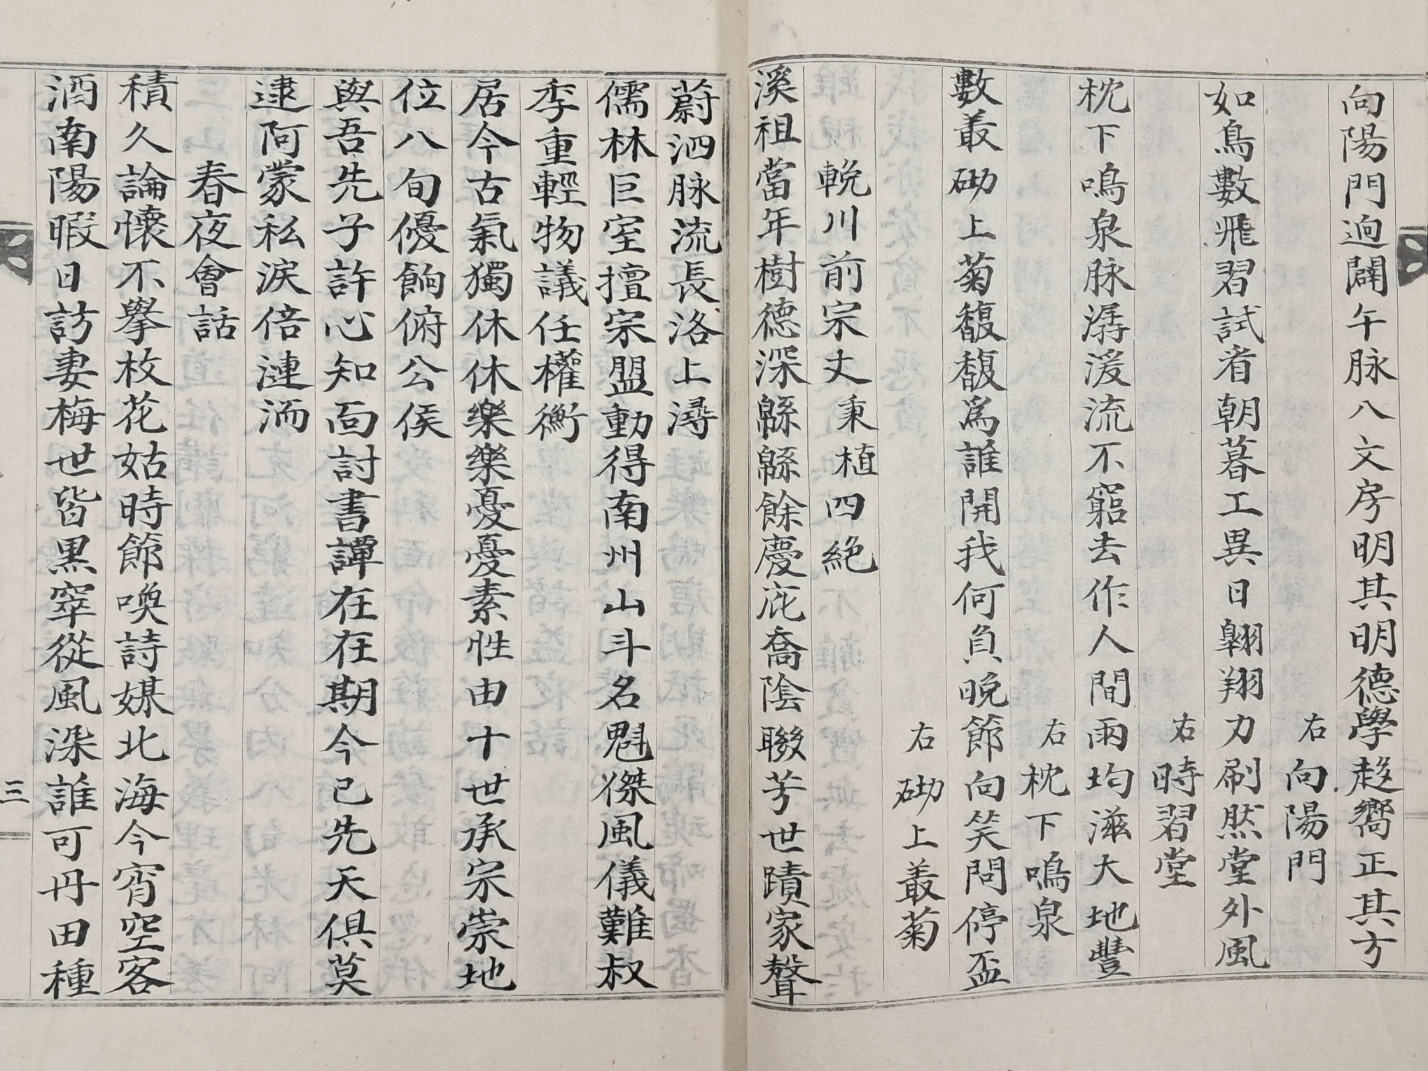 向陽門迥闢午脉八文房明其明德學趍嚮正其方
右向陽門
如鳥數飛習試看朝暮工異日翱翔力刷然堂外風
右時習堂
枕下鳴泉脉潺湲流不窮去作人間雨均滋大地豐
右枕下鳴泉
數叢砌上菊馥馥爲誰開我何負晩節向笑問停盃
右砌上叢菊
輓川前宗丈秉植四絶
溪祖當年樹德深緜緜餘慶庇喬陰聯芳世蹟家聲
蔚泗脉流長洛上潯
儒林巨室擅宗盟動得南州山斗名魁傑風儀難叔
季重輕物議任權衡
居今古氣獨休休樂樂憂憂素性由十世承宗崇地
位八旬優餉俯公侯
與吾先子許心知面討書譚在在期今已先天俱莫
逮阿蒙私淚倍漣洏
春夜會話
積久論懷不擧枚花姑時節喚詩媒北海今宵空客
酒南陽暇日訪妻梅世皆黑窣從風渁誰可丹田種
三